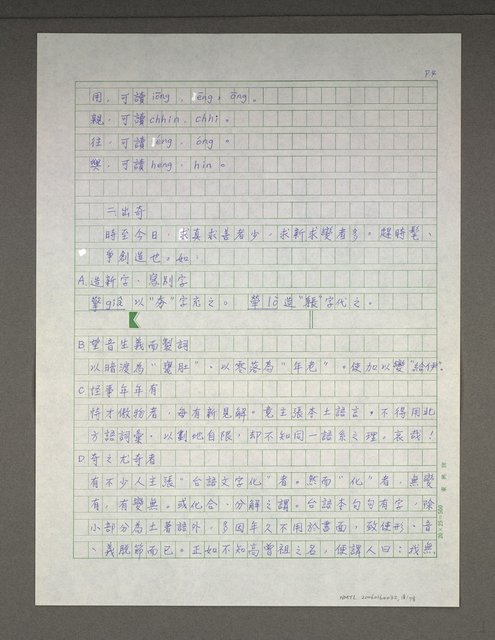 P.4
用，可讀iōng，ēng，ōng。
親，可讀chhin，chhi。
往，可讀éng，óng。
興，可讀heng，hin。
二出奇
時至今日，求真求善者少，求新求變者多。趕時髦、
爭創造也。如：
A.造新字、寫別字
以"夯"字充之。 造"躼"字代之。
B望音生義而製詞
以暗渡為"甕肚"、以零落為"年老"。使加以變"給伊"。
C怪事年年有
恃才傲物者，每有新見解。竟主張本土語言，不得用北
方語詞彙，以劃地自限，却不知同一語系之理。哀哉！
D奇之尤奇者
有不少人主張"台語文字化"者。然而"化"者，無變
有，有變無。或化合、分解之謂。台語本句句有字，除
小部分為土著語外，多因年久不用於書面，致使形、音
、義脫節而已。正如不知高曾祖之名，便謂人曰：找無
20×25=500